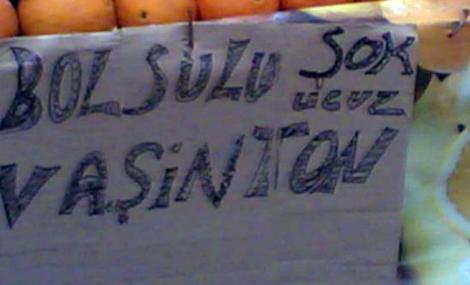 BOL SULU ŞOK
UCUZ
VAŞİNTON